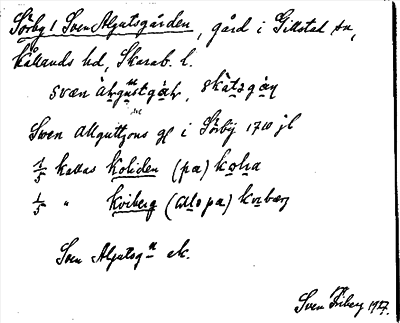 Sörby 1 Sven Algutsgården, gård i Gillstad sn,
Kållands hd, Skarab. l.
svæn àlgustgåɽ, skàtagaɳ
Sven Allguttzons gl i Sörbÿ 1710 jl
1/5 kallas Koliden (pa) kolia
1/5 " Kviberg (alopa) kvibærg
Sven Algutsg n ek.
Sven Friberg 1927.